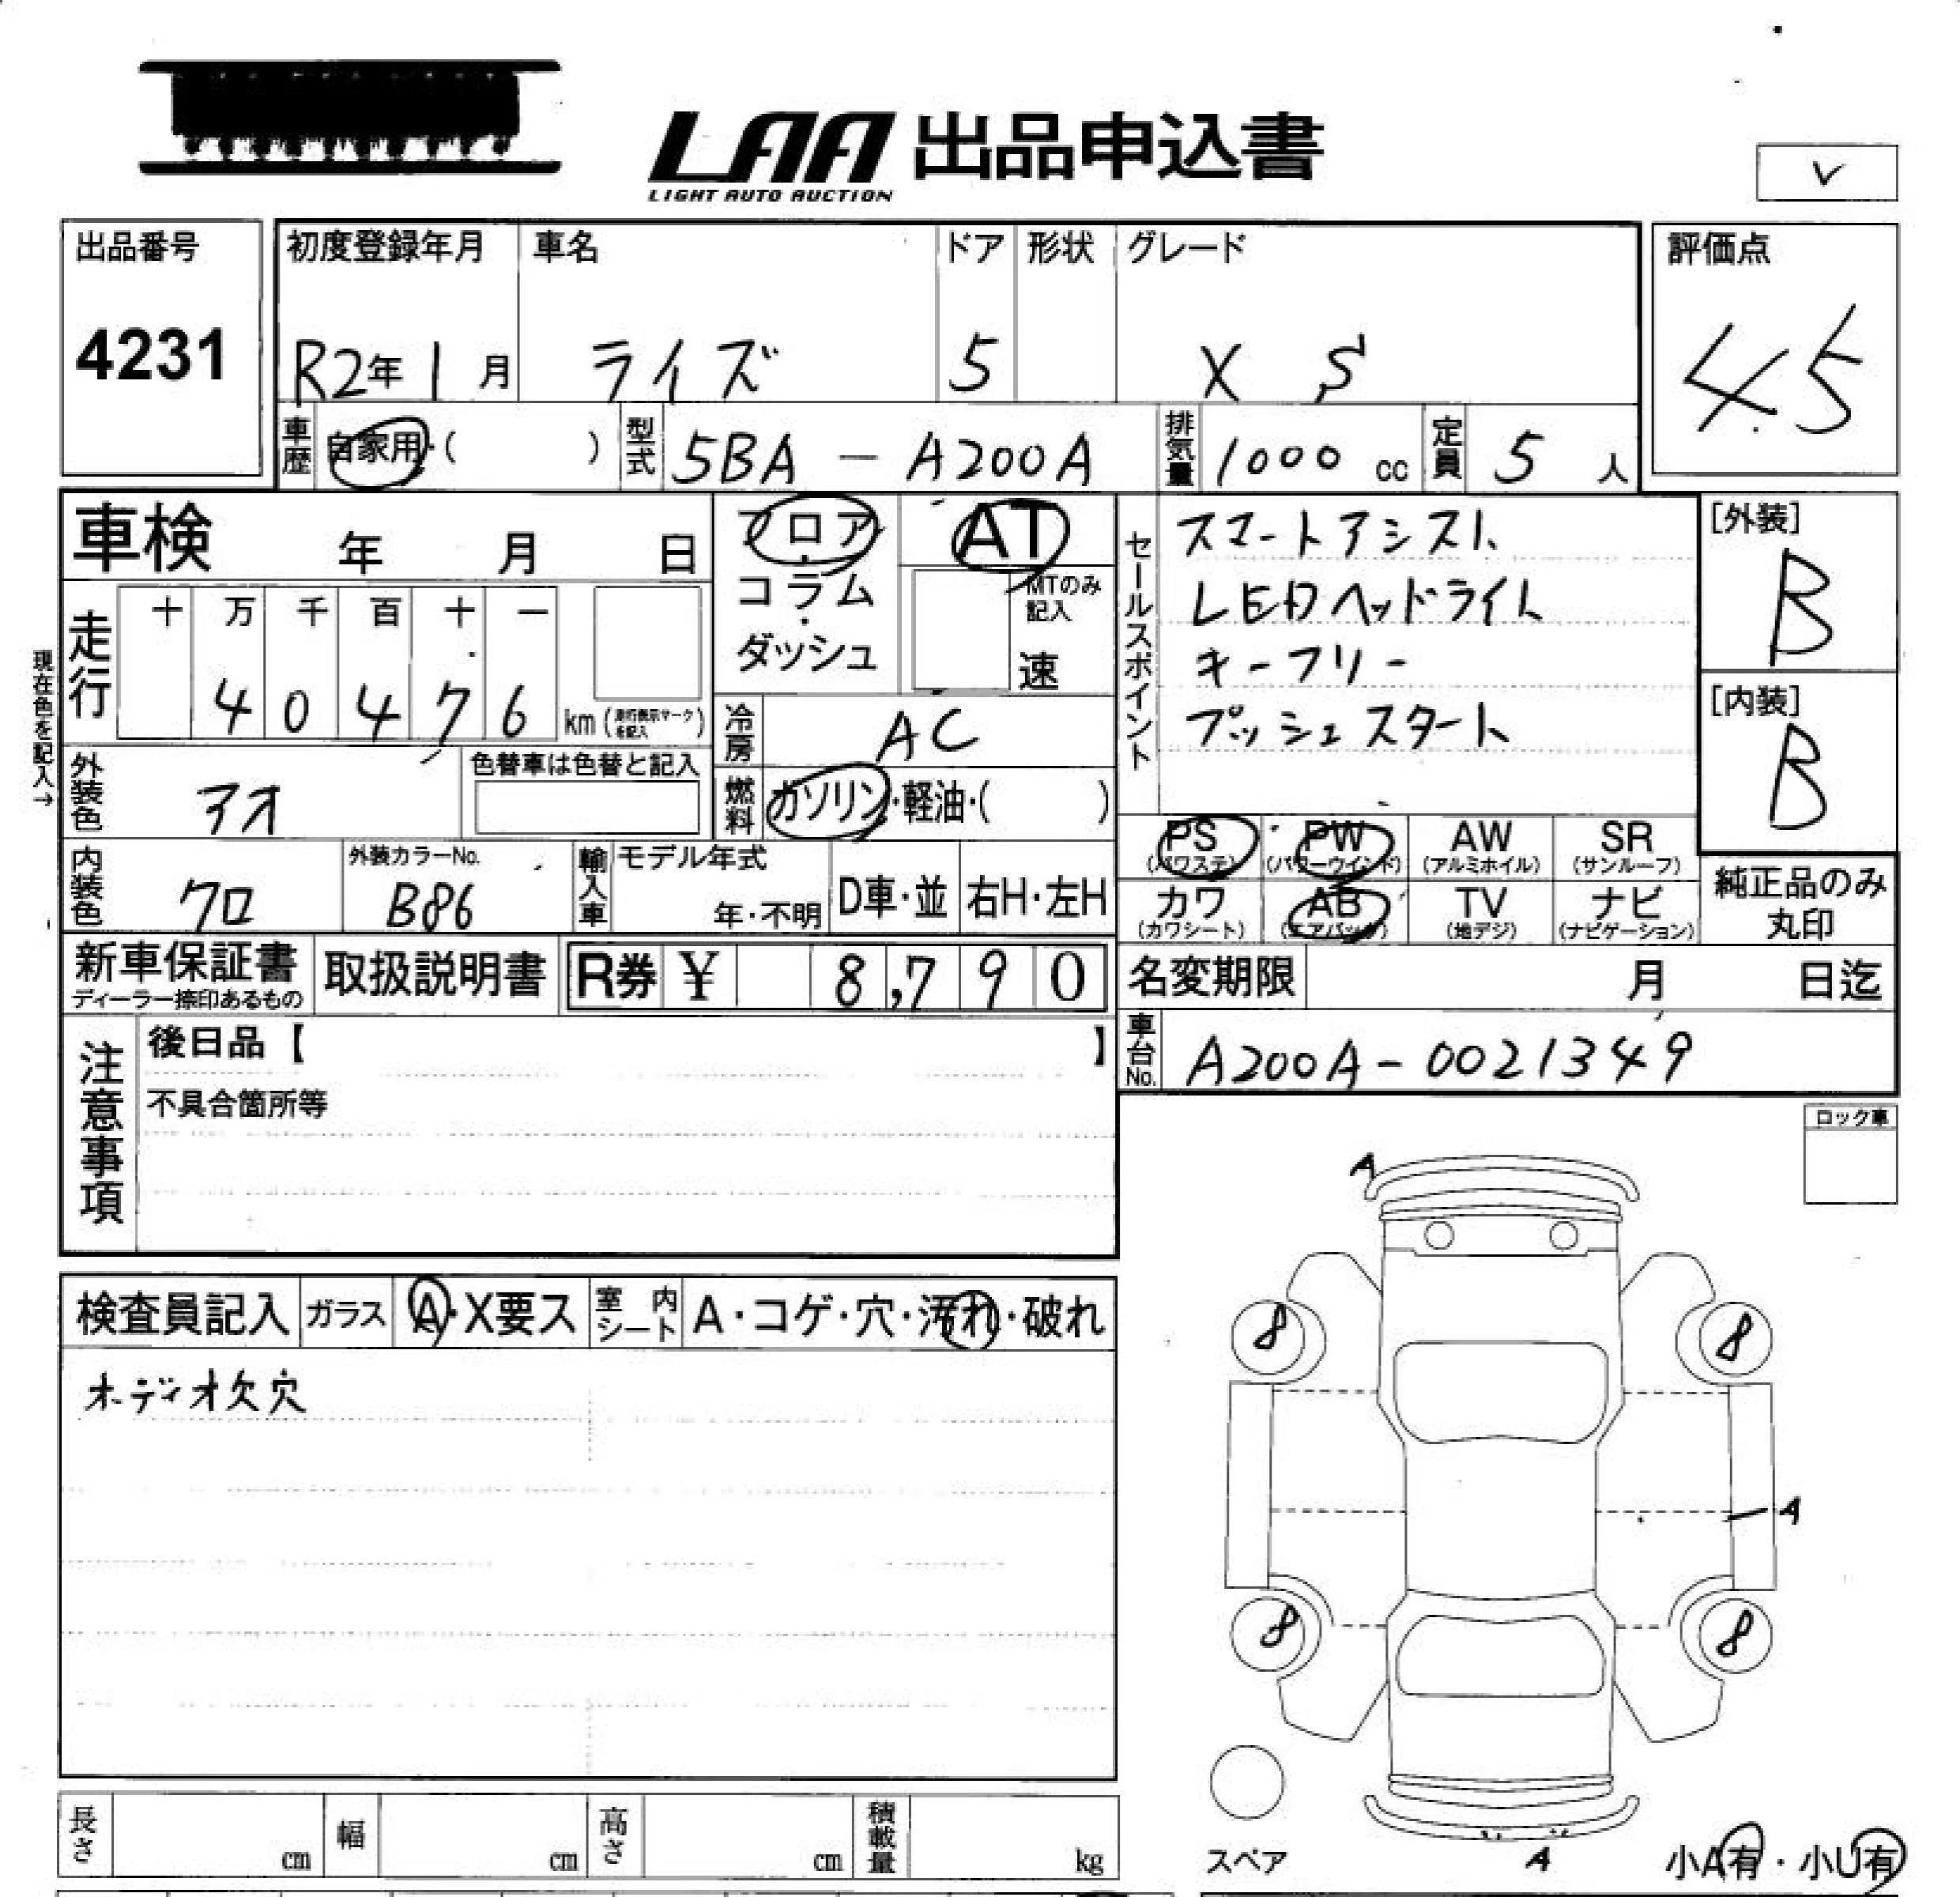 LAA 出品申込書
LIGHT AUTO AUCTION
V
出品番号
4231
初度登録年月 車名 ドア 形状 グレード
R2年 1月 ライズ 5 X S
評価点
4.5
車歴 自家用・( ) 型式 5BA - A200A 排気量 1000 cc 定員 5 人
車検 年 月 日
フロア・コラム・ダッシュ
AT
MTのみ記入
速
現在色を記入→
走行 十 万 千 百 十 一
40476 km (走行表示マークを記入)
冷房 AC
外装色 アオ 色替車は色替と記入
燃料 ガソリン・軽油・( )
内装色 クロ 外装カラーNo. B86
輸入車 モデル年式 年・不明 D車・並 右H・左H
セールスポイント
スマートアシスト
LEDヘッドライト
キーフリー
プッシュスタート
[外装]
B
[内装]
B
PS (パワステ) PW (パワーウインド) AW (アルミホイル) SR (サンルーフ)
カワ (カワシート) AB (エアバック) TV (地デジ) ナビ (ナビゲーション)
純正品のみ丸印
新車保証書 ディーラー捺印あるもの 取扱説明書 R券 ¥ 8,790
名変期限 月 日迄
車台No. A200A-0021349
注意事項
後日品【 】
不具合箇所等
ロック車
検査員記入 ガラス A・X要ス 室内シート A・コゲ・穴・汚れ・破れ
オーディオ欠穴
A
8 8
A
8 8
スペア
A
小A有・小U有
長さ cm 幅 cm 高さ cm 積載量 kg